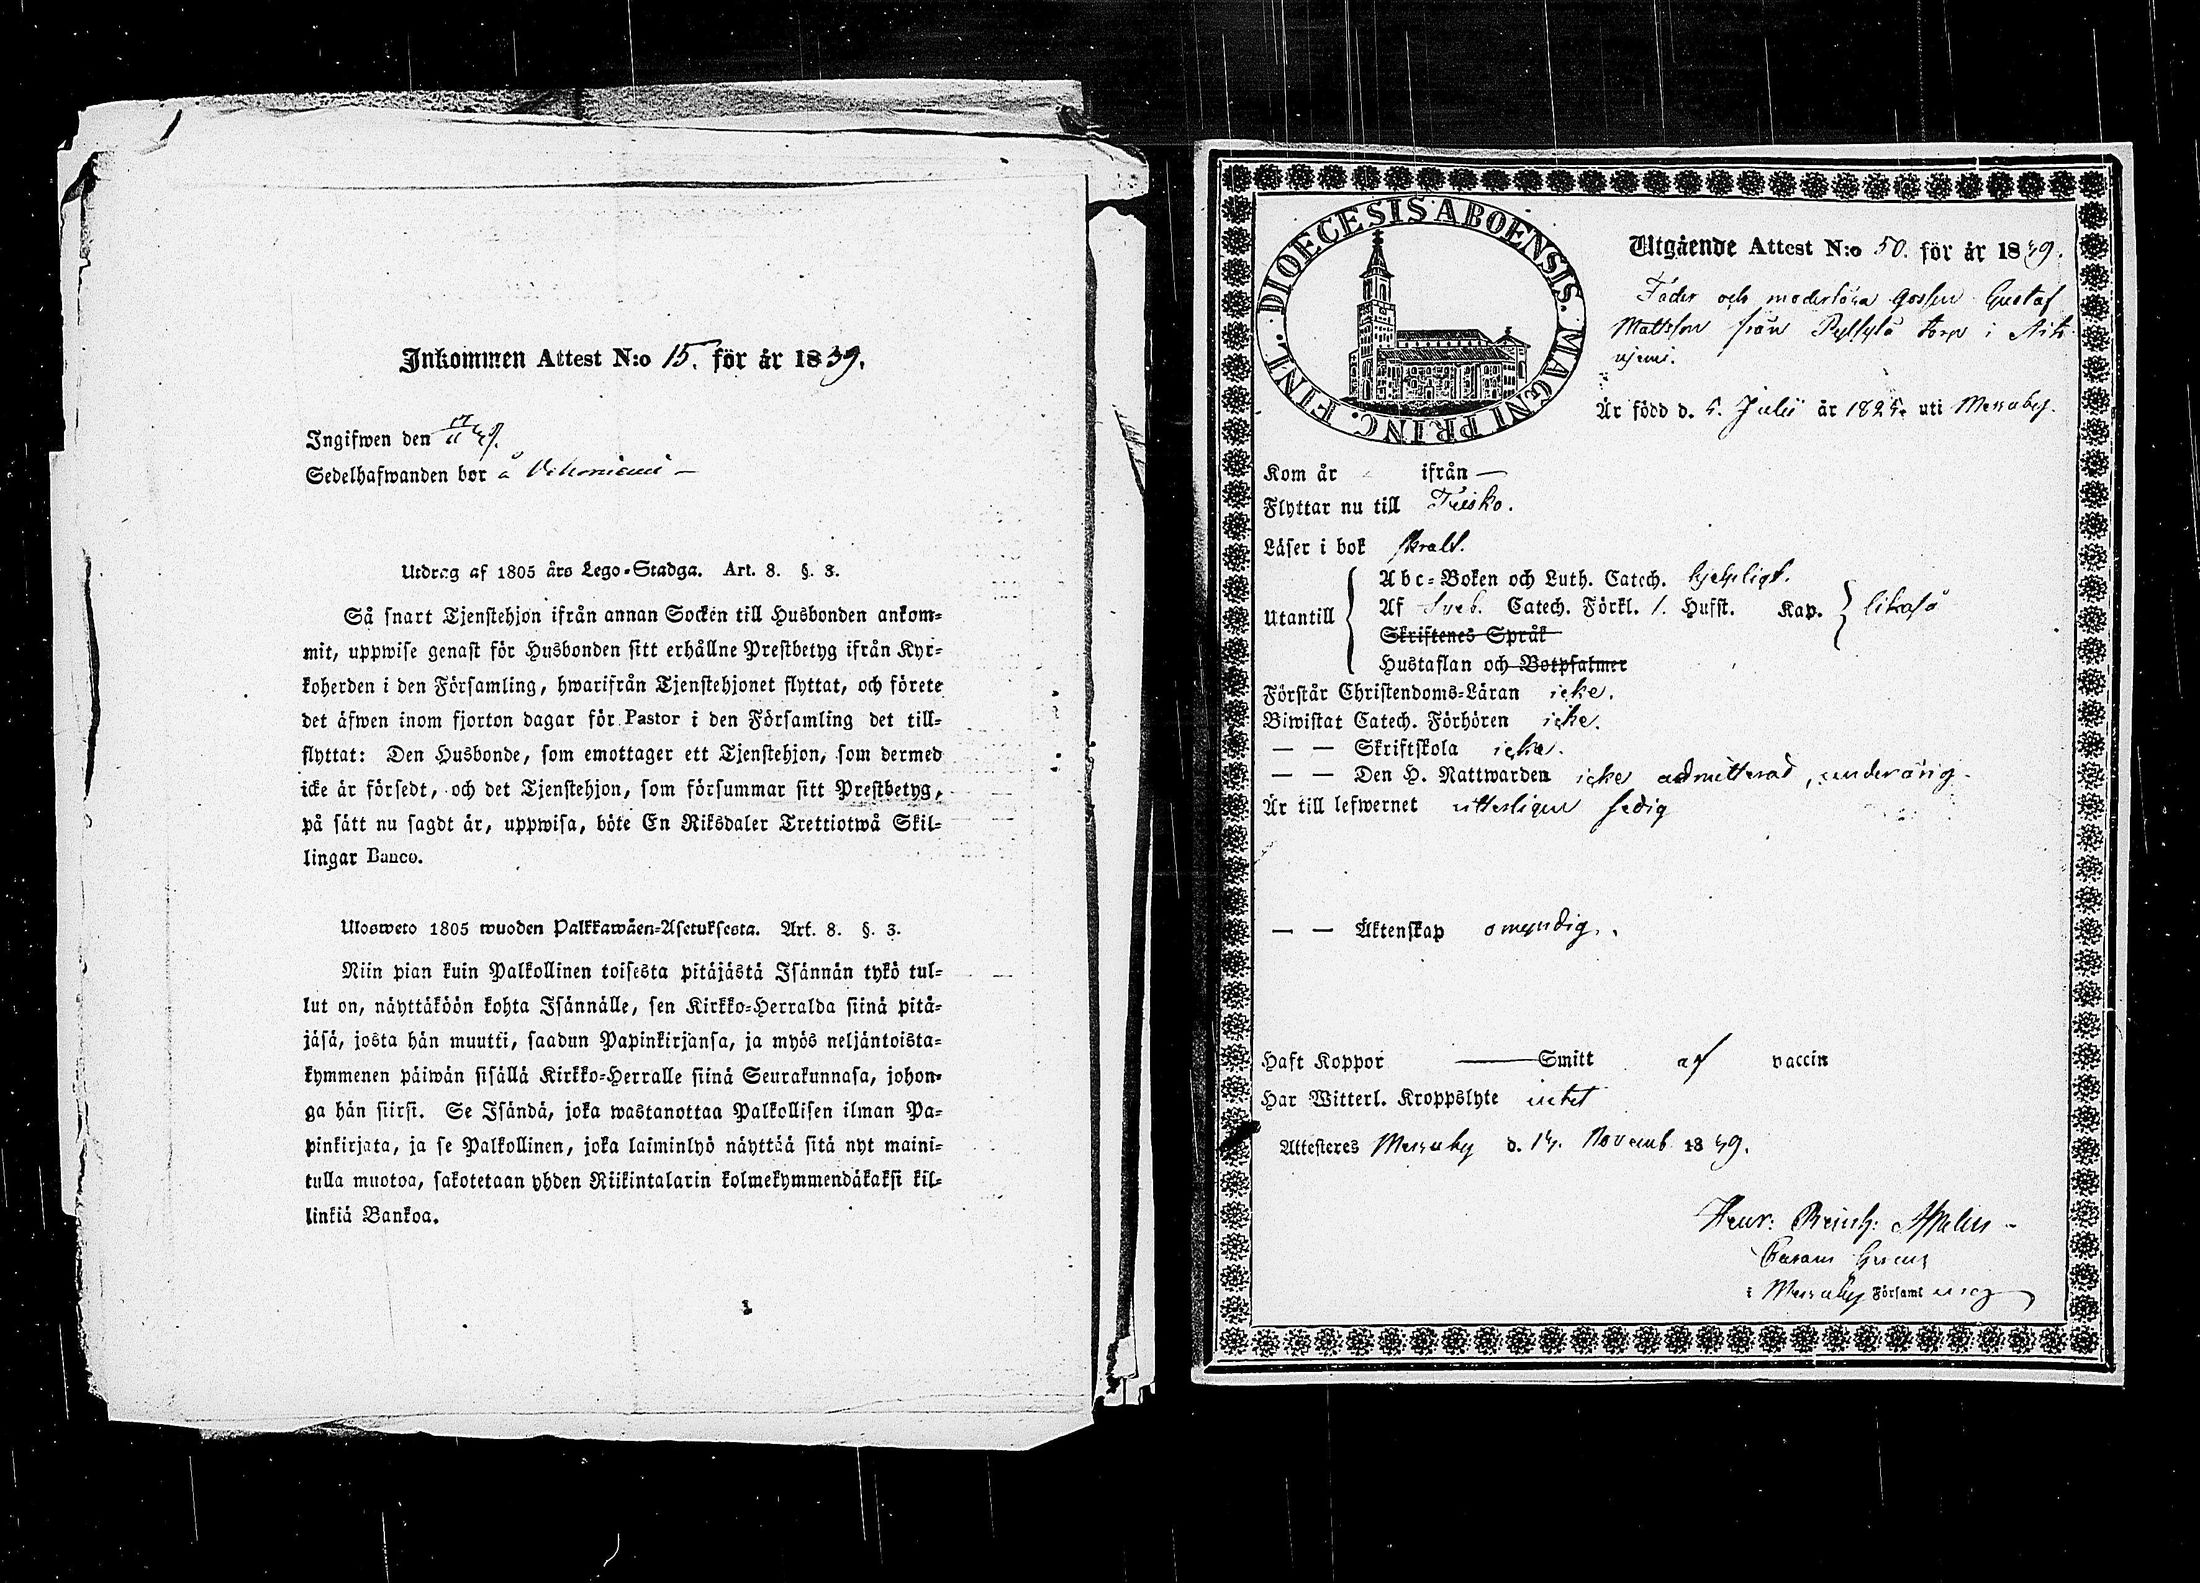 Inkommen Attest N:o 15. för år 1839.
Ingifwen den 17/11 39.
Sedelhafwanden bor å
Utdrag af 1805 års Lego-Stadga. Art. 8. §. 3.
Så snart Tjenstehjon ifrån annan Socken till Husbonden ankom-
mit, uppwise genast för Husbonden sitt erhållne Prestbetyg ifrån Kyr-
koherden i den Församling, hwarifrån Tjenstehjonet flyttat, och förete
det äfwen inom fjorton dagar för Pastor i den Församling det till-
flyttat: Den Husbonde, som emottager ett Tjenstehjon, som dermed
icke är försedt, och det Tjenstehjon, som försummar sitt Prestbetyg,
på sätt nu sagdt är, uppwisa, böte En Riksdaler Trettiotwå Skil-
lingar Banco.
Ulosweto 1805 wuoden Palkkawäen-Asetuksesta. Art. 8. §. 3.
Niin pian kuin Palkollinen toisesta pitäjästä Isännän tykö tul-
lut on, näyttäköön kohta Isännälle, sen Kirkko-Herralda siinä pitä-
jäsä, josta hän muutti, saadun Papinkirjansa, ja myös neljäntoista-
kymmenen päiwän sisällä Kirkko-Herralle siinä Seurakunnasa, johon-
ga hän siirsi. Se Isändä, joka wastanottaa Palkollisen ilman Pa-
pinkirjata, ja se Palkollinen, joka laiminlyö näyttää sitä nyt maini-
tulla muotoa, sakotetaan yhden Riikintalarin kolmekymmendäkaksi kil-
linkiä Bankoa.
DIOECESIS ABOENSIS. MAGNI PRINC. FINL.
Utgående Attest N:o 50. för år 1839.
Fader och moderlösa Gossen Gustaf
Mattsson från torp i Aito
njemi.
Är född d. 5. Julii år 1825. uti Messuby.
Kom år ifrån —
Flyttar nu till Teisko.
Läser i bok svalt.
Utantill
Abc-Boken och Luth. Catech. hjelpligt.
Af Sveb. Catech. Förkl. 1. Hufst. Kap. likaså
Skriftenes Språk
Hustaflan och Botpsalmer
Förstår Christendoms-Läran icke.
Biwistat Catech. Förhören icke.
— — Skriftskola icke.
— — Den H. Nattwarden icke admitterad, underårig.
Är till lefwernet sedig
— — Äktenskap omyndig.
Haft Koppor — Smitt af vaccin
Har Witterl. Kroppslyte intet
Attesteres Messuby d. 14. Novemb. 1839.
Henr: Reinh:
i Messuby Församl